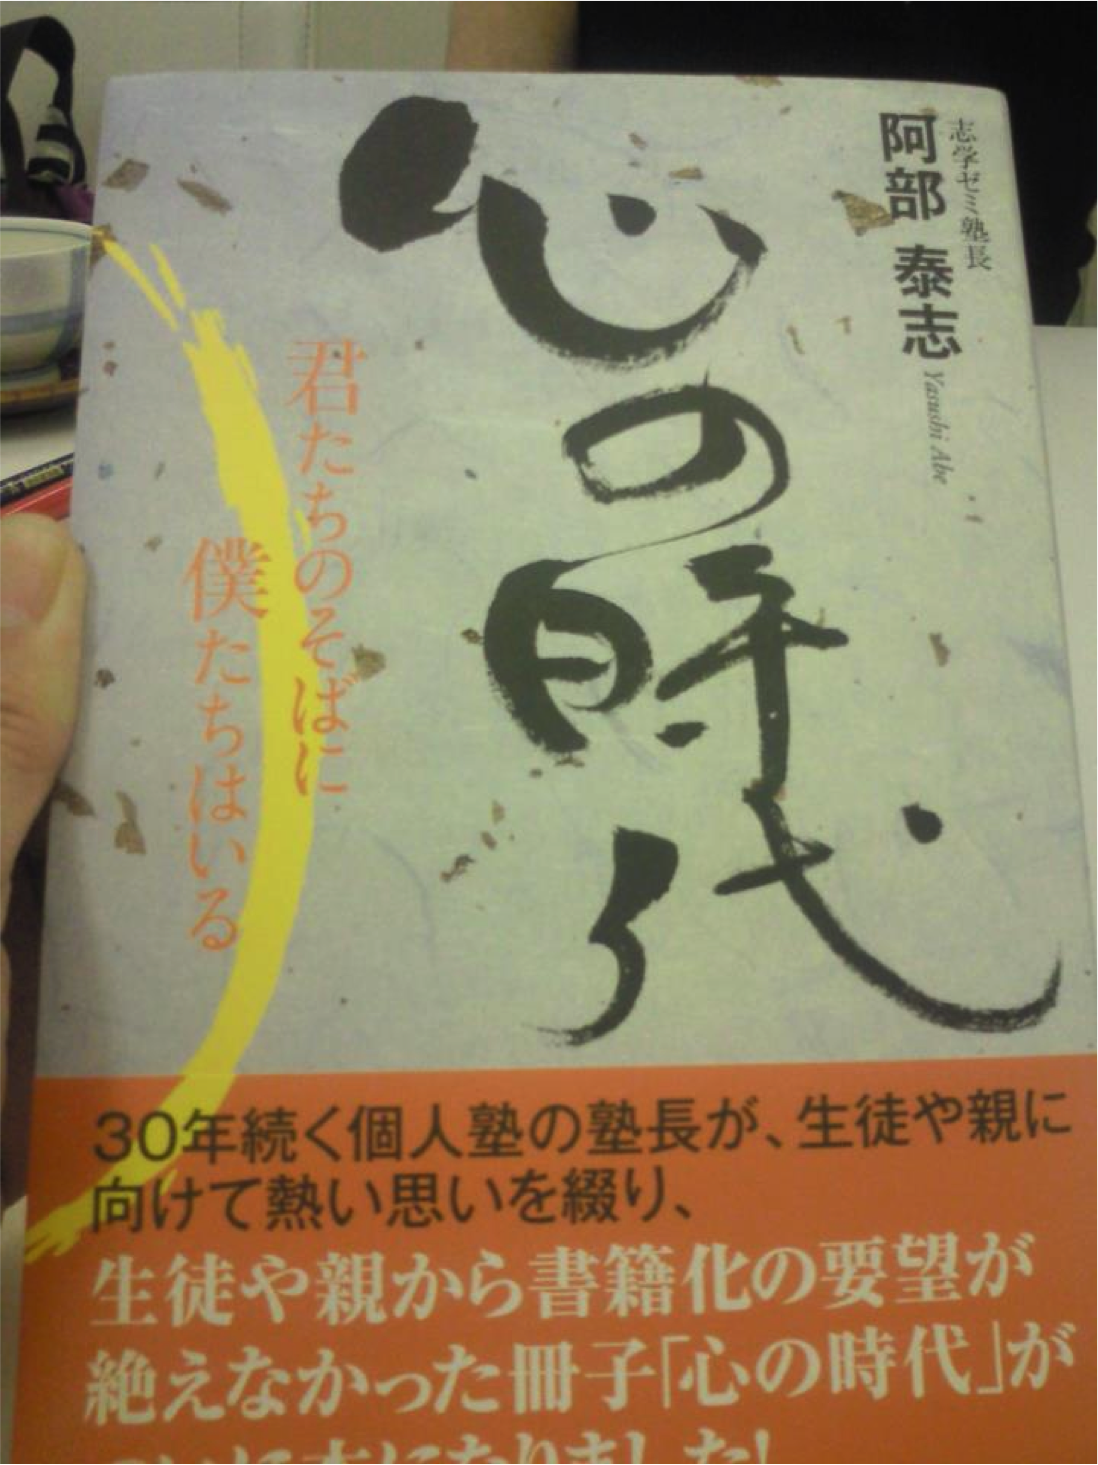 志学ゼミ塾長
阿部 泰志
Yasushi Abe
心の時代
君たちのそばに
僕たちはいる
30年続く個人塾の塾長が、生徒や親に
向けて熱い思いを綴り、
生徒や親から書籍化の要望が
絶えなかった冊子「心の時代」が
ついに本になりました!